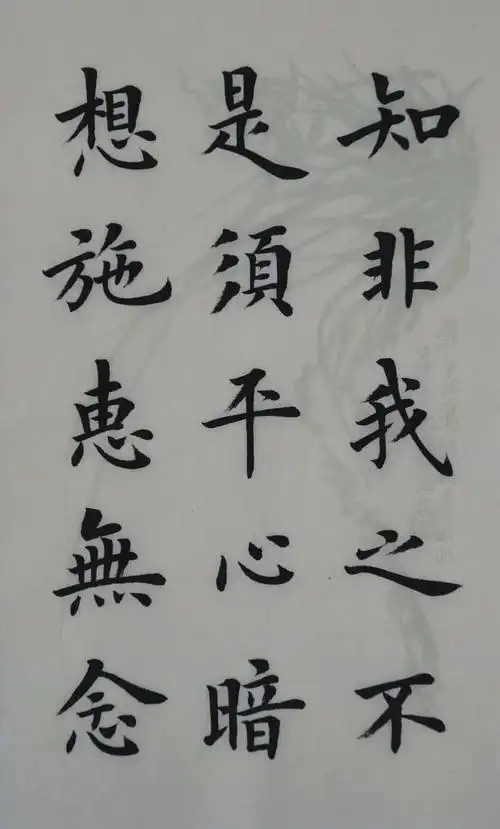 知非我之不
是須平心暗
想施惠無念